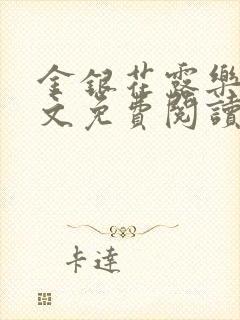 金銀花露樂
文免費閱讀
卡達